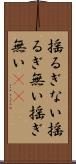 揺るぎない揺
るぎ無い揺ぎ
無い((